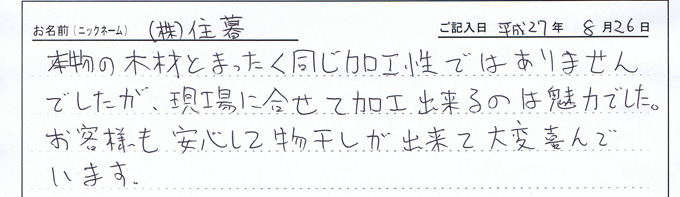 お名前（ニックネーム） (株)住暮 ご記入日 平成27年 8月26日
本物の木材とまったく同じ加工性ではありません
でしたが、現場に合せて加工出来るのは魅力でした。
お客様も安心して物干しが出来て大変喜んで
います。